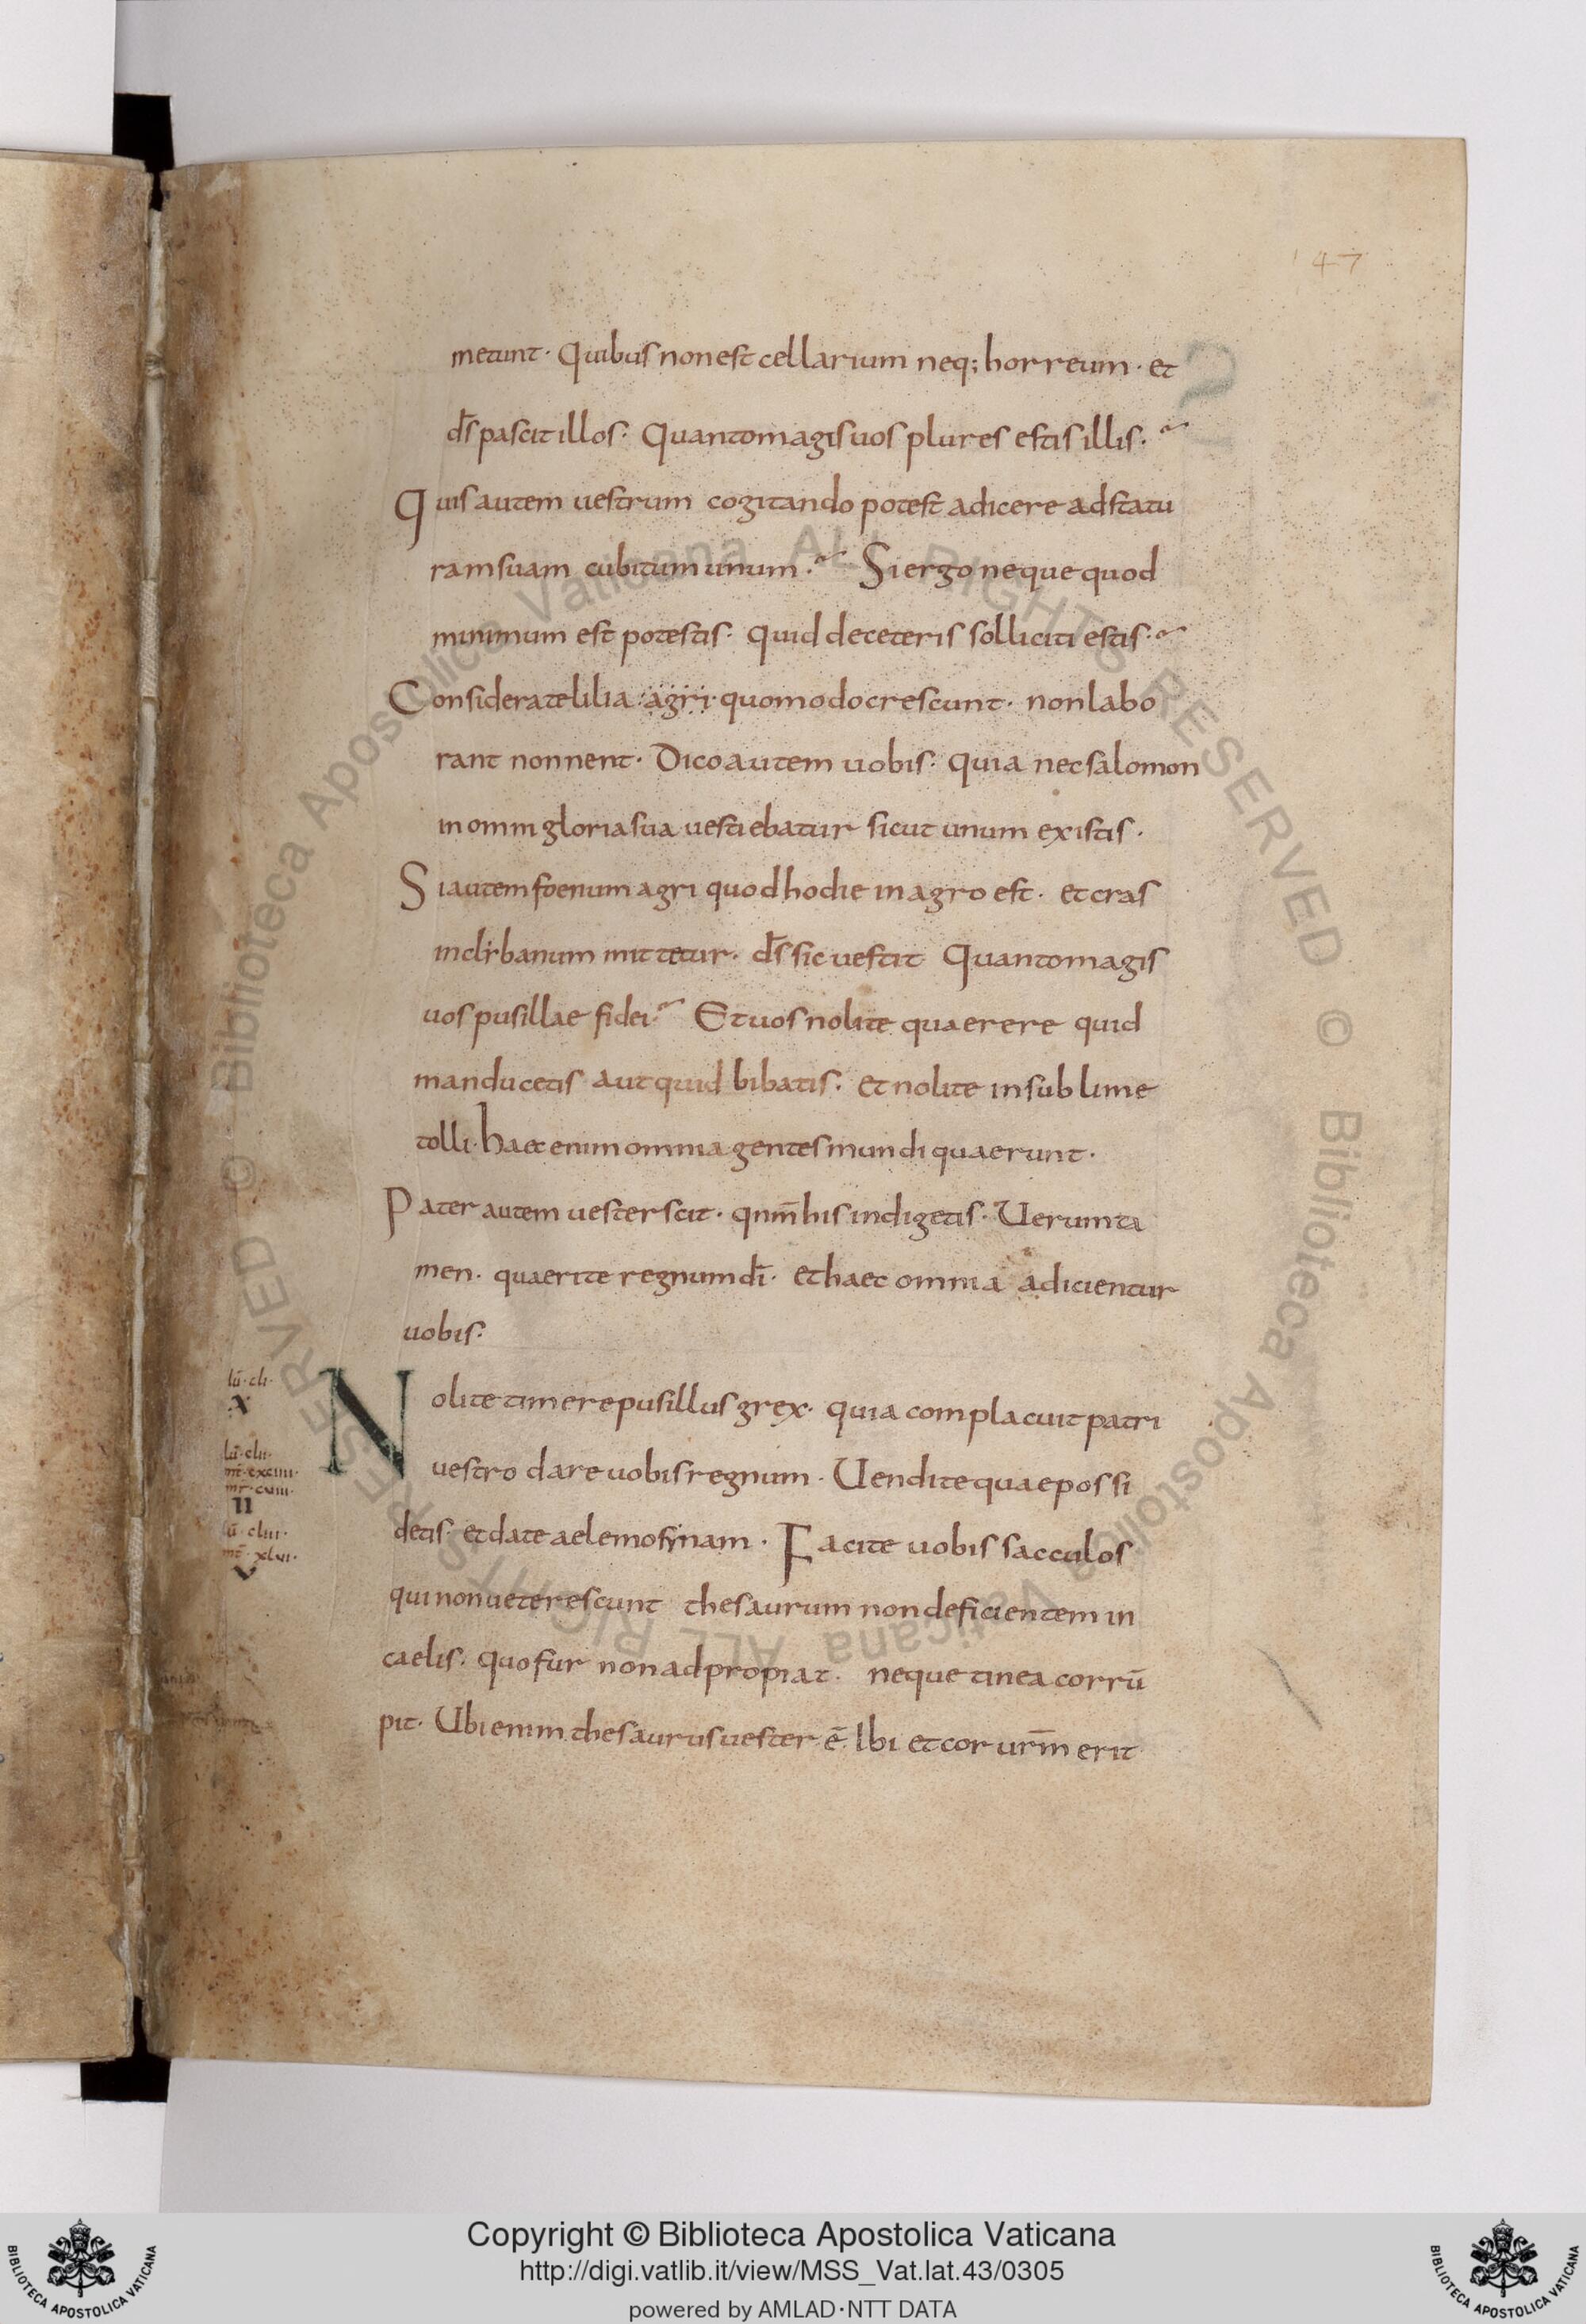 147
metunt· Quibus non est cellarium neq; horreum· et
d̄s pascit illos· Quanto magis vos plures estis illis·
Quis autem vestrum cogitando potest adicere ad statu
ram suam cubitum unum· Si ergo neque quod
minimum est potestis· quid de ceteris solliciti estis·
Considerate lilia agri quomodo crescunt· non labo
rant non nent· Dico autem vobis· quia nec salomon
in omni gloria sua vestiebatur sicut unum ex istis·
Si autem foenum agri quod hodie in agro est· et cras
in clibanum mittetur· d̄s sic vestit Quanto magis
vos pusillae fidei· Et vos nolite quaerere quid
manducetis aut quid bibatis· et nolite in sublime
tolli· haec enim omnia gentes mundi quaerunt·
Pater autem vester scit· qnm̄ his indigetis· Verumta
men· quaerite regnum dī· et haec omnia adicientur
vobis·
lū·cli·
x
Nolite timere pusillus grex· quia complacuit patri
lū·clii·
mt̄·cxciiii·
mr·cviii·
II
vestro dare vobis regnum· Vendite quae possi
lū·cliii·
mt̄·xlvi·
V
detis· et date aelemosynam· Facite vobis sacculos
qui non veterescunt thesaurum non deficientem in
caelis· quo fur non adpropiat· neque tinea corrū
pit· Ubi enim thesaurus vester ē· Ibi et cor vrm̄ erit
© Biblioteca Apostolica Vaticana ALL RIGHTS RESERVED © Biblioteca Apostolica Vaticana ALL RIGHTS RESERVED
Copyright © Biblioteca Apostolica Vaticana
http://digi.vatlib.it/view/MSS_Vat.lat.43/0305
powered by AMLAD·NTT DATA
BIBLIOTECA APOSTOLICA VATICANA
BIBLIOTECA APOSTOLICA VATICANA